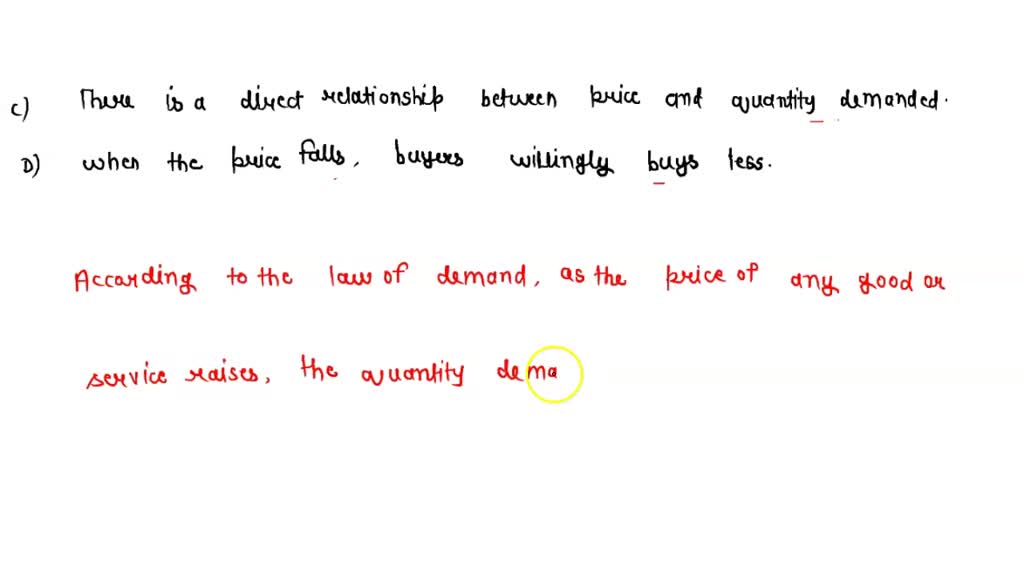 c) There is a direct relationship between price and quantity demanded.
D) when the price falls, buyers willingly buys less.
According to the law of demand, as the price of any good or
service raises, the quantity dema